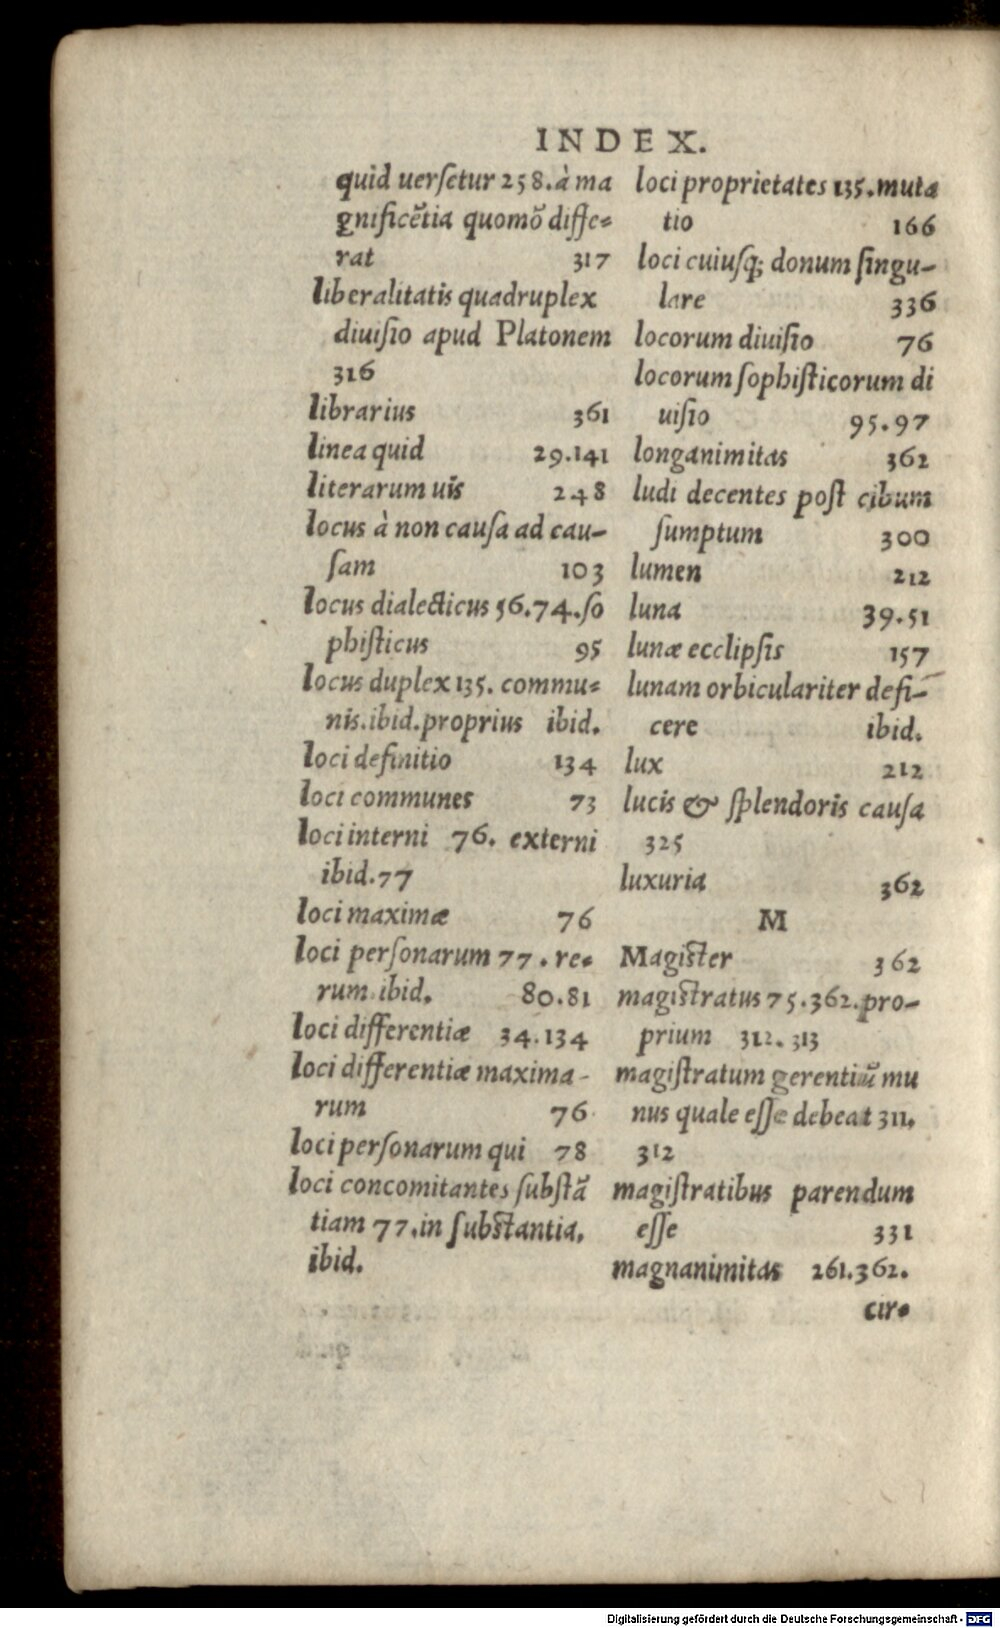 INDEX.
quid uerſetur 258. à ma
gnificẽtia quomõ diffe⸗
rat 317
liberalitatis quadruplex
diuiſio apud Platonem
316
librarius 361
linea quid 29.141
literarum uis 248
locus à non cauſa ad cau-
ſam 103
locus dialecticus 56.74.ſo
phiſticus 95
locus duplex 135. commu⸗
nis.ibid.proprius ibid.
loci definitio 134
loci communes 73
loci interni 76. externi
ibid.77
loci maximæ 76
loci perſonarum 77. re⸗
rum ibid. 80.81
loci differentiæ 34.134
loci differentiæ maxima-
rum 76
loci perſonarum qui 78
loci concomitantes ſubſtã
tiam 77.in ſubstantia.
ibid.
loci proprietates 135.muta
tio 166
loci cuiuſq; donum ſingu-
lare 336
locorum diuiſio 76
locorum ſophiſticorum di
uiſio 95.97
longanimitas 362
ludi decentes poſt cibum
ſumptum 300
lumen 212
luna 39.51
lunæ ecclipſis 157
lunam orbiculariter defi-
cere ibid.
lux 212
lucis & ſplendoris cauſa
325
luxuria 362
M
Magister 362
magistratus 75.362.pro-
prium 312.313
magiſtratum gerentiũ mu
nus quale eſſe debeat 311.
312
magiſtratibus parendum
eſſe 331
magnanimitas 261.362.
cir⸗
Digitalisierung gefördert durch die Deutsche Forschungsgemeinschaft - DFG